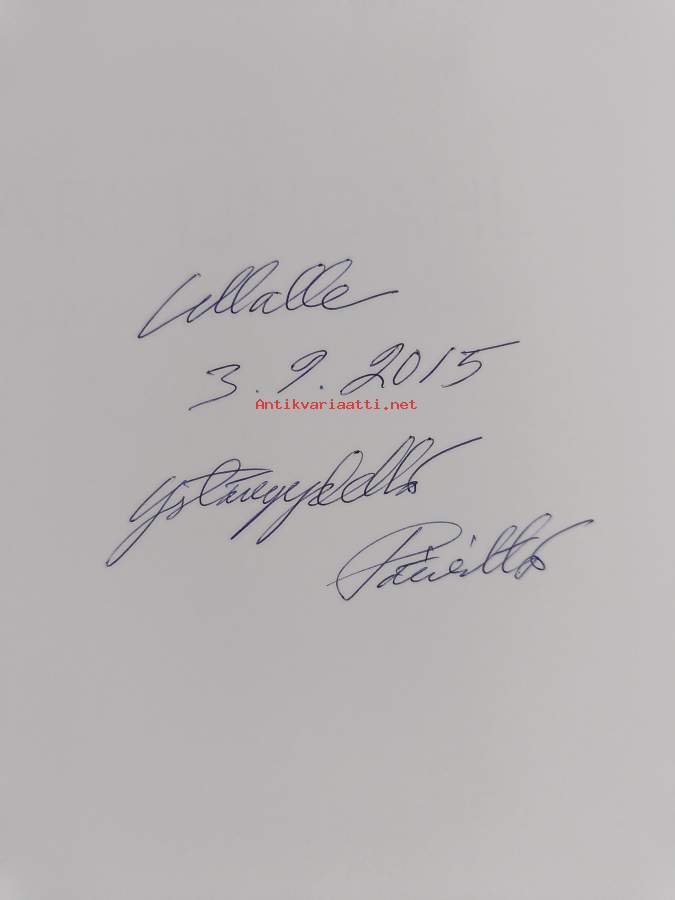 Ullalle
3.9.2015
Antikvariaatti.net
ystävyydellä
Päiviltä